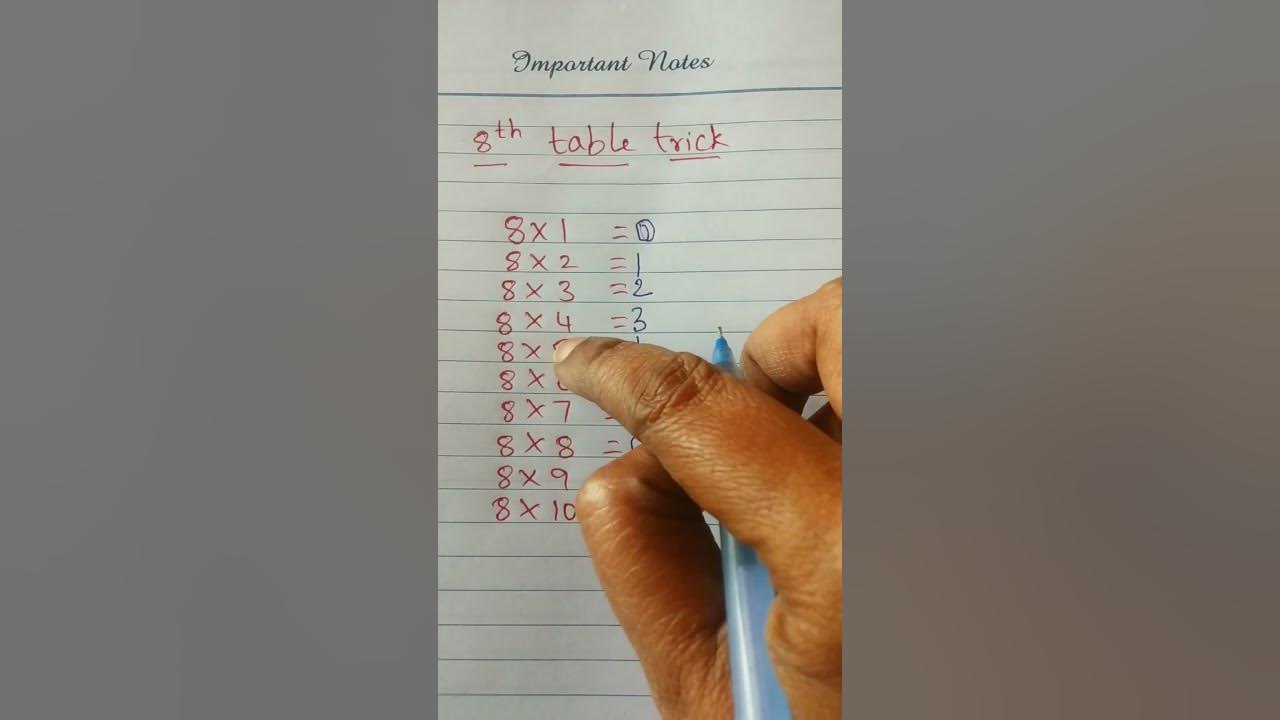 Important Notes
8th table trick
8 × 1 = 0
8 × 2 = 1
8 × 3 = 2
8 × 4 = 3
8 ×
8 ×
8 × 7 =
8 × 8 =
8 × 9
8 × 10